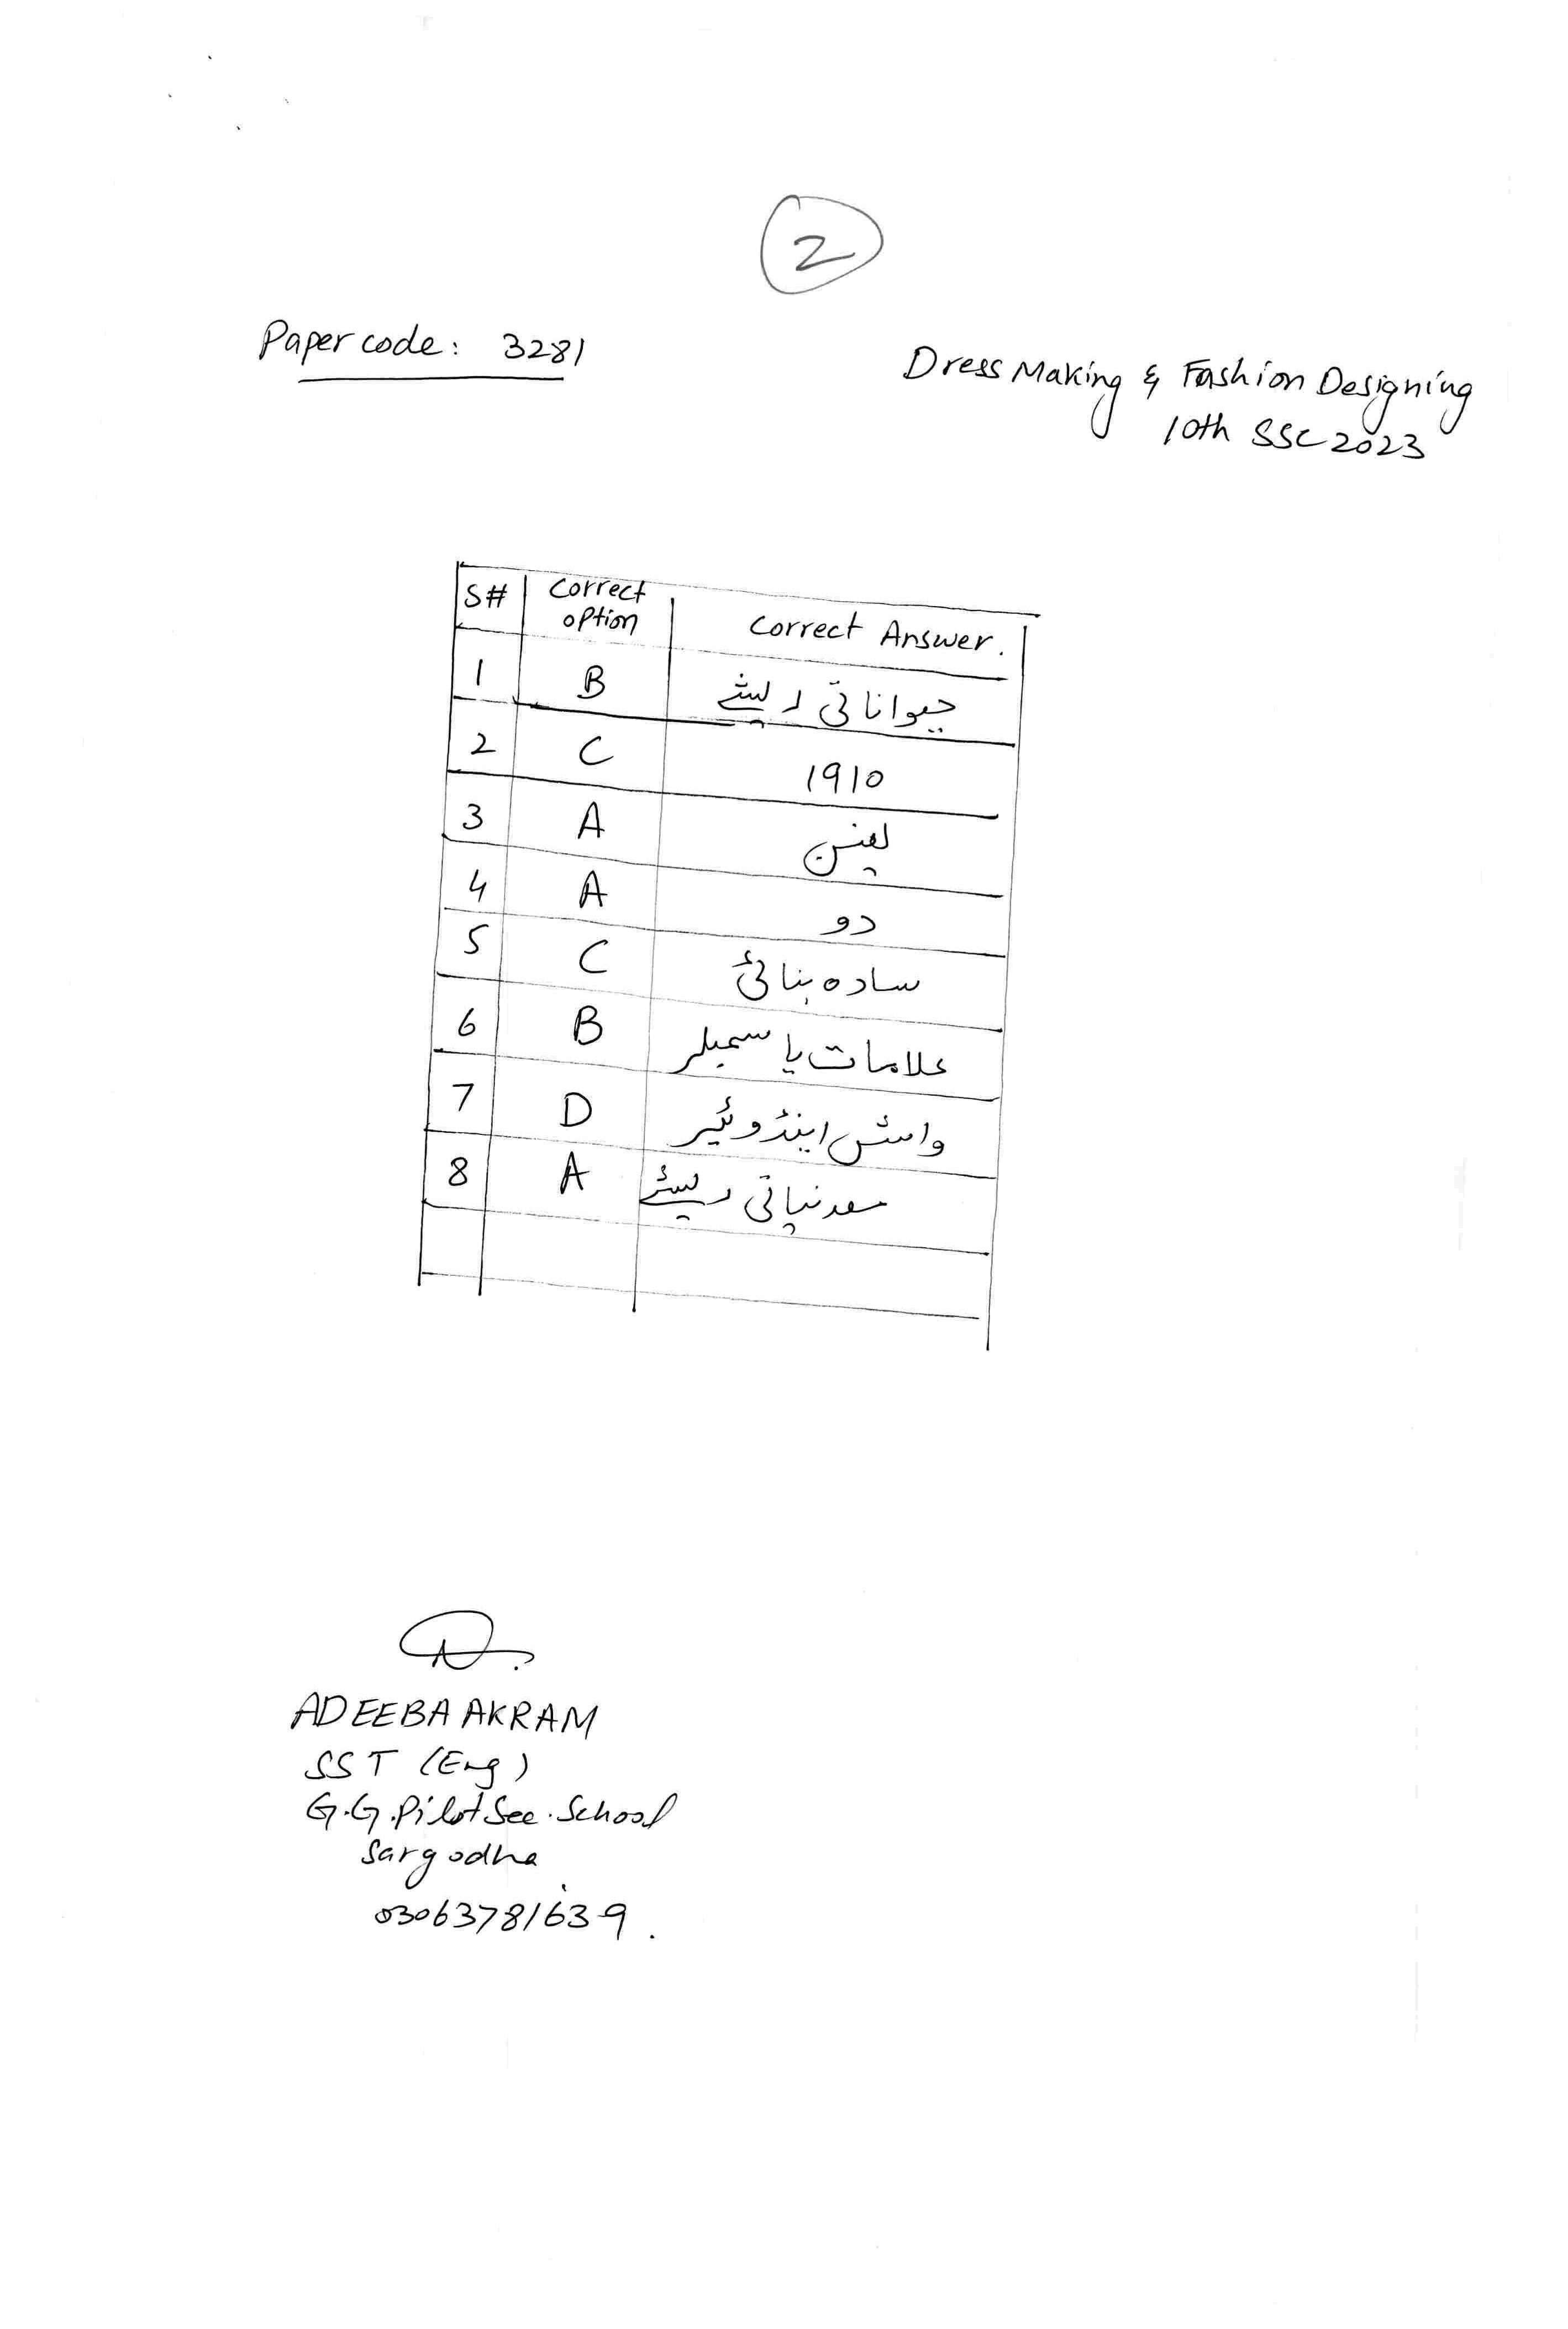 2
Paper code: 3281
Dress Making & Fashion Designing
10th SSC 2023
S# Correct option Correct Answer.
1 B حیواناتی ریشے
2 C 1910
3 A لینن
4 A دو
5 C سادہ بنائی
6 B علامات یا سمبلز
7 D واش اینڈ وئیر
8 A معدنیاتی ریشے
ADEEBA AKRAM
SST (Eng)
G.G.Pilot Sec. School
Sargodha
03063781639.